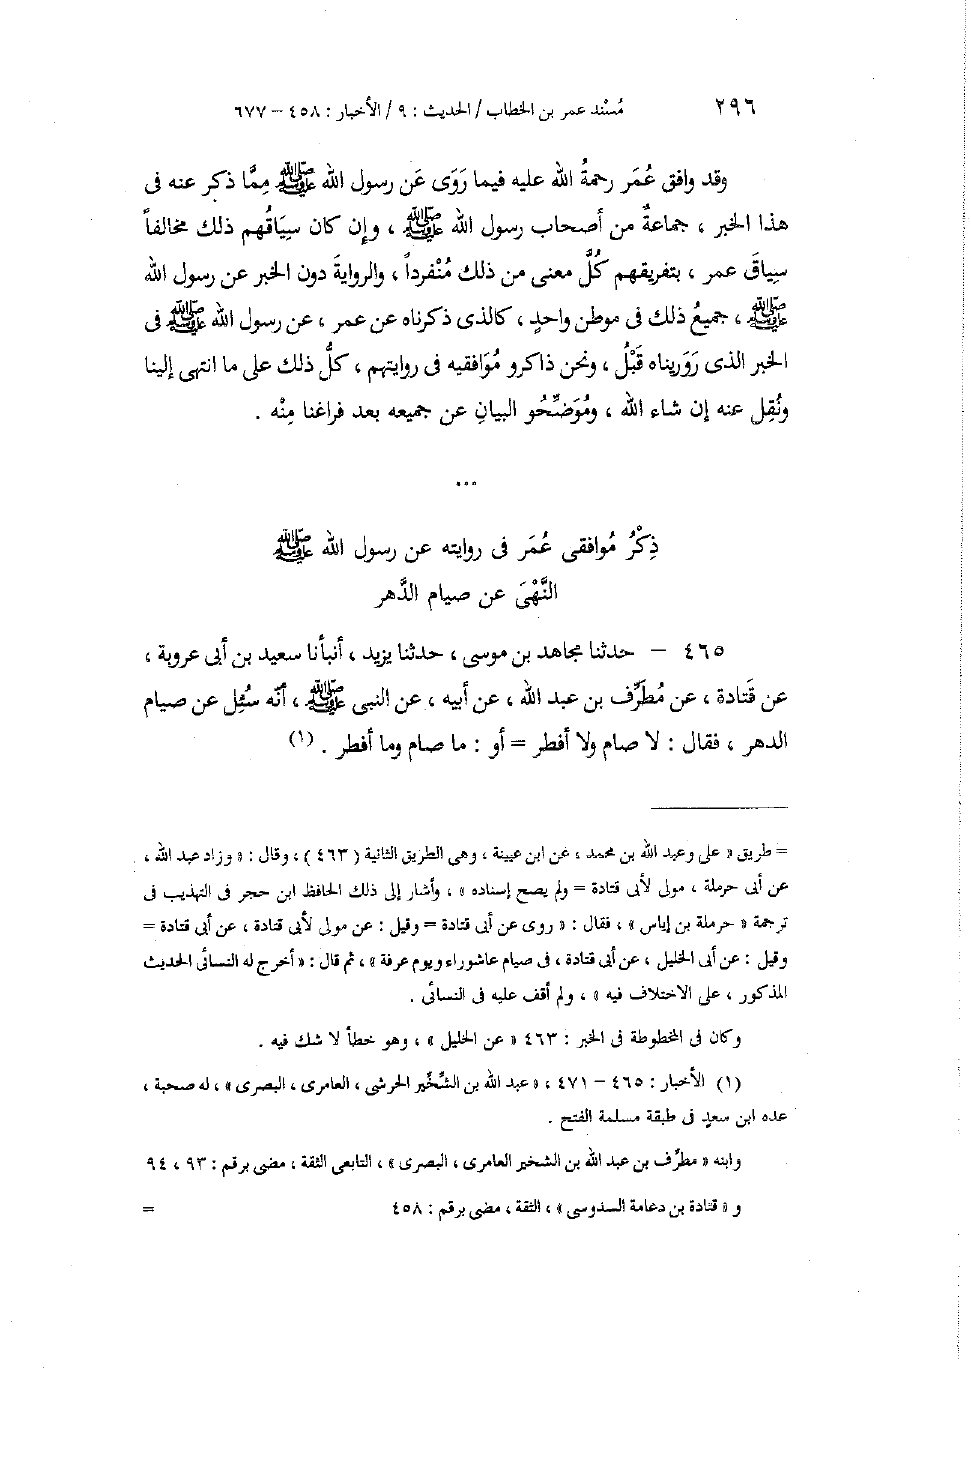 ٢٩٦ مُسْند عمر بن الخطاب / الحديث : ٩ / الأخبار : ٤٥٨ – ٦٧٧
وقد وافق عُمَر رحمةُ الله عليه فيما رَوَى عَن رسول الله ﷺ مِمَّا ذكر عنه فى
هذا الخبر ، جماعةٌ من أصحاب رسول الله ﷺ ، وإن كان سِيَاقُهم ذلك مخالفاً
سِياقَ عمر ، بتفريقهم كُلَّ معنى من ذلك مُنْفرداً ، والروايةَ دون الخبر عن رسول الله
ﷺ ، جميعُ ذلك فى موطن واحدٍ ، كالذى ذكرناه عن عمر ، عن رسول الله ﷺ فى
الخبر الذى رَوَريناه قَبْلُ ، ونحن ذاكرو مُوَافقيه فى روايتهم ، كلُّ ذلك على ما انتهى إلينا
ونُقِل عنه إن شاء الله ، ومُوَضِّحُو البيانِ عن جميعه بعد فراغنا مِنْه .
...
ذِكْرُ مُوافقى عُمَر فى روايته عن رسول الله ﷺ
النَّهْىَ عن صيام الدَّهر
٤٦٥ – حدثنا مجاهد بن موسى ، حدثنا يزيد ، أنبأنا سعيد بن أبى عروبة ،
عن قَتادة ، عن مُطَرِّف بن عبد الله ، عن أبيه ، عن النبى ﷺ ، أنّه سُئِل عن صيام
الدهر ، فقال : لا صام ولا أفطر = أو : ما صام وما أفطر . (١)
= طريق « على وعبد الله بن محمد ، عن ابن عيينة ، وهى الطريق الثانية ( ٤٦٣ ) ، وقال : « وزاد عبد الله ،
عن أبى حرملة ، مولى لأبى قتادة = ولم يصح إسناده » ، وأشار إلى ذلك الحافظ ابن حجر فى التهذيب فى
ترجمة « حرملة بن إياس » ، فقال : « روى عن أبى قتادة = وقيل : عن مولى لأبى قتادة ، عن أبى قتادة =
وقيل : عن أبى الخليل ، عن أبى قتادة ، فى صيام عاشوراء ويوم عرفة » ، ثم قال : « أخرج له النسائى الحديث
المذكور ، على الاختلاف فيه » ، ولم أقف عليه فى النسائى .
وكان فى المخطوطة فى الخبر : ٤٦٣ « عن الخليل » ، وهو خطأ لا شك فيه .
(١) الأخبار : ٤٦٥ – ٤٧١ ، « عبد الله بن الشِّخِّير الحرشى ، العامرى ، البصرى » ، له صحبة ،
عده ابن سعدٍ فى طبقة مسلمة الفتح .
وابنه « مطرِّف بن عبد الله بن الشخير العامرى ، البصرى » ، التابعى الثقة ، مضى برقم : ٩٣ ، ٩٤
و « قتادة بن دعامة السدوسى » ، الثقة ، مضى برقم : ٤٥٨ =